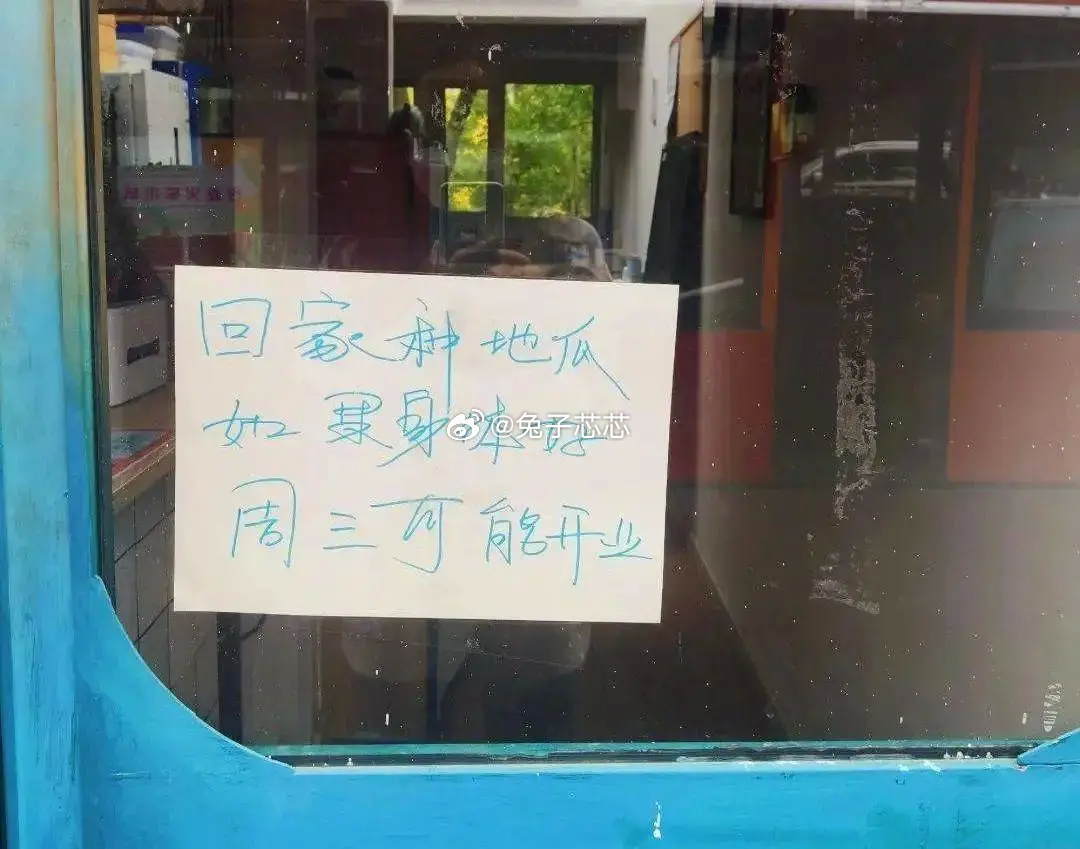 回家种地瓜
如果身体好
周三可能开业
@兔子芯芯